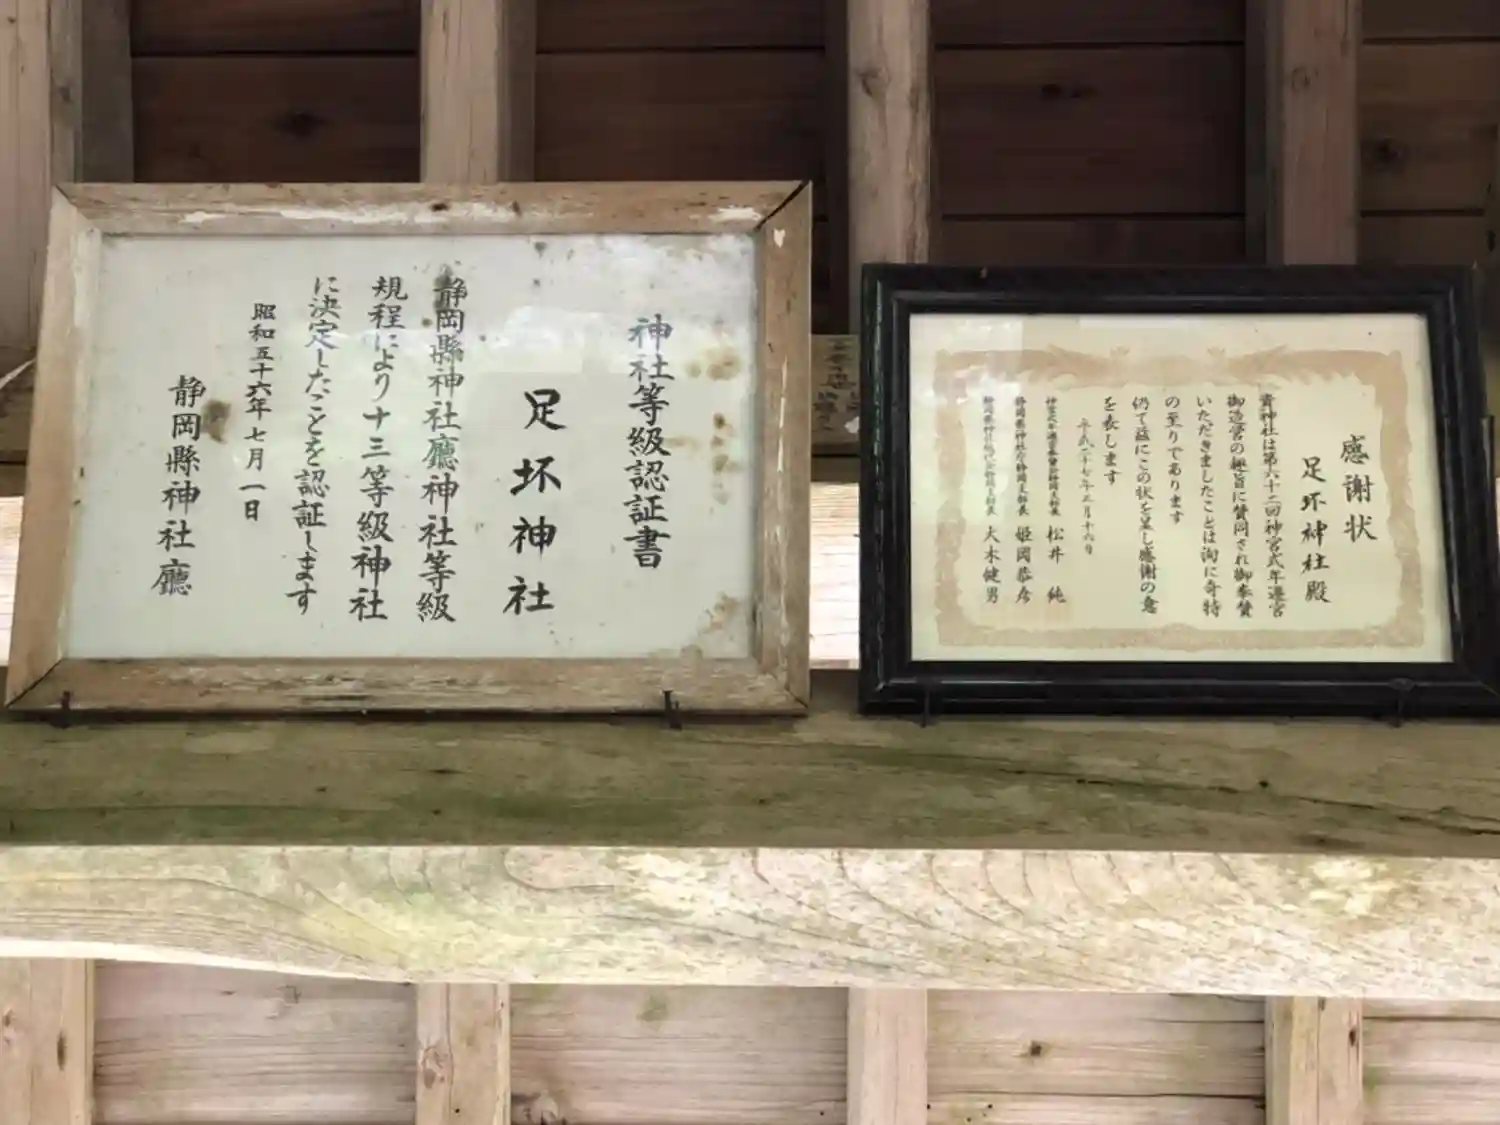 神社等級認証書
足坏神社
静岡縣神社廳神社等級
規程により十三等級神社
に決定したことを認証します
昭和五十六年七月一日
静岡縣神社廳
感謝状
足坏神社殿
貴神社は第六十二回神宮式年遷宮
御造営の趣旨に賛同され御奉賛
いただきましたことは洵に奇特
の至りであります
仍て茲にこの状を呈し感謝の意
を表します
平成二十七年三月十六日
神宮式年遷宮奉賛会静岡支部長 松井 純
静岡県神社庁静岡支部長 姫岡恭彦
静岡県神社総代会静岡支部長 大木健男